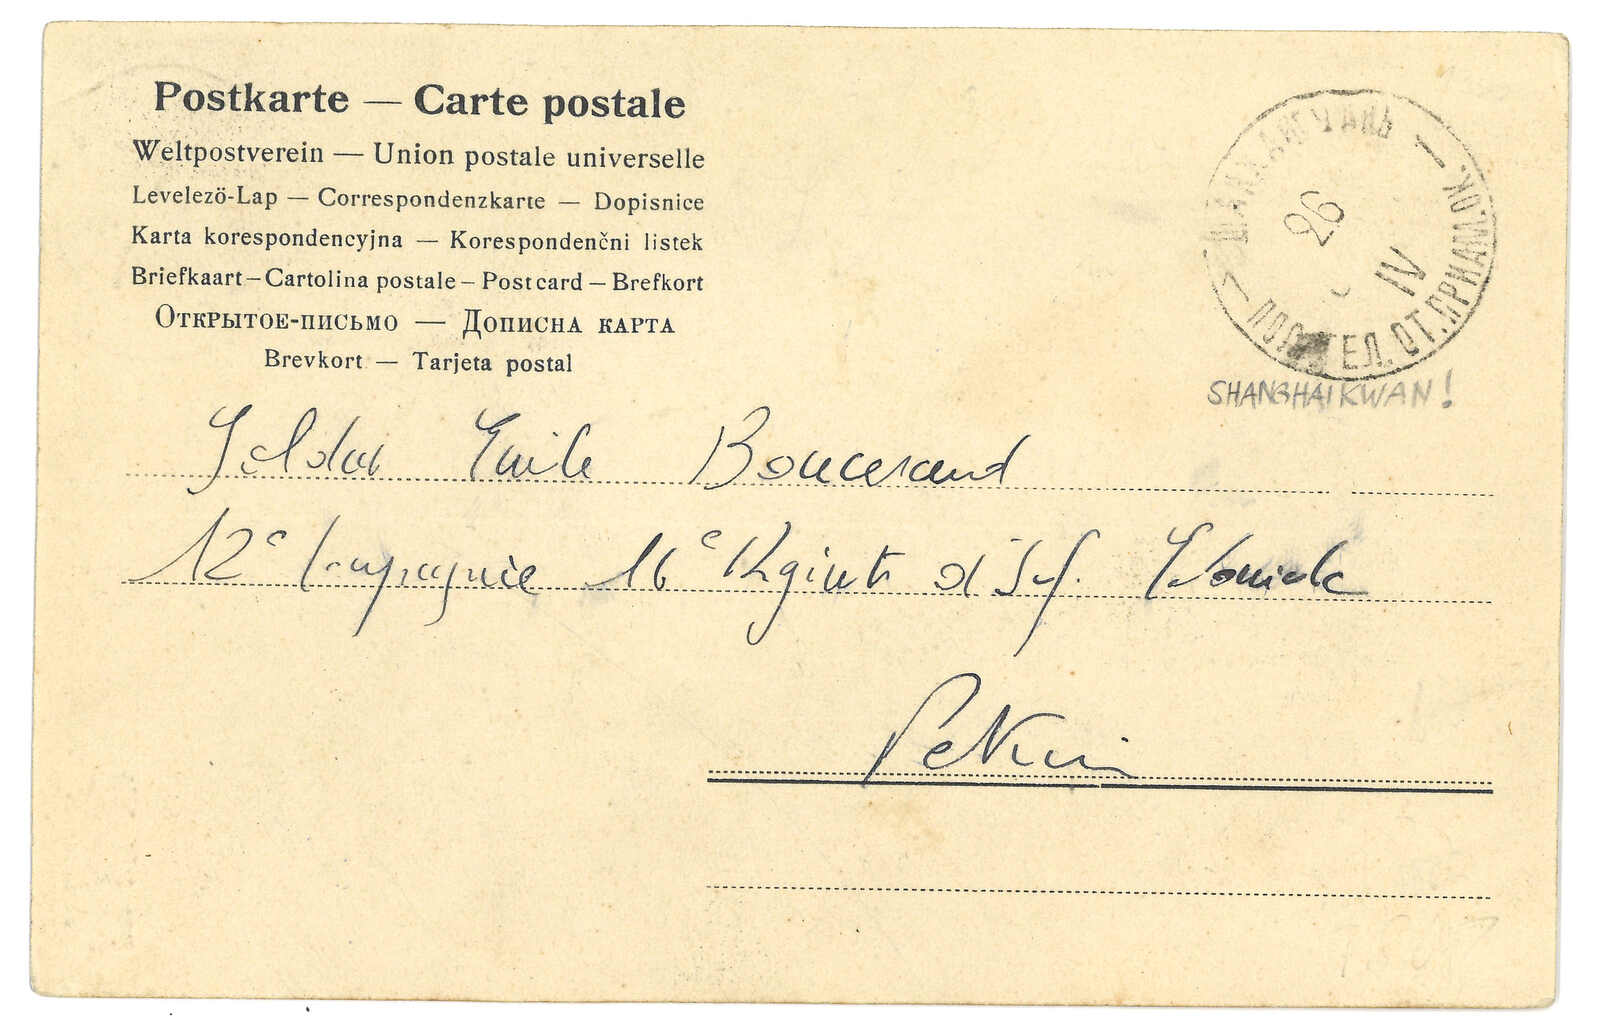 Postkarte — Carte postale
Weltpostverein — Union postale universelle
Levelező-Lap — Correspondenzkarte — Dopisnice
Karta korespondencyjna — Korespondenčni listek
Briefkaart – Cartolina postale – Postcard – Brefkort
Открытое-письмо — Дописна карта
Brevkort — Tarjeta postal
ШАНХАЙГУАНЬ
26
IV
ПОЧ. ТЕЛ. ОТ. ПРИАМ. ОК.
SHANGHAIKWAN!
Soldat Emile Boucerand
12e Compagnie 16e Rgiment d'Inf. Coloniale
Pekin